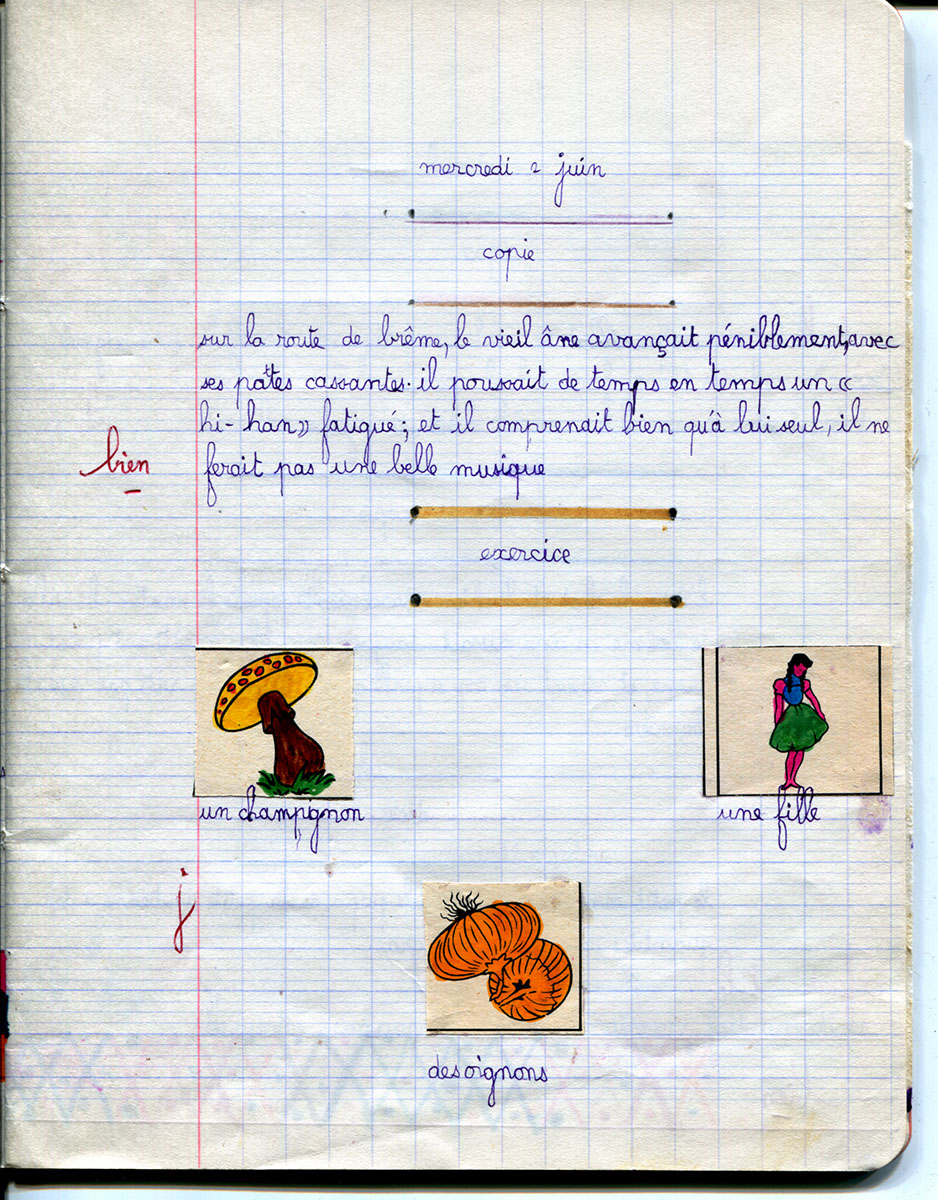 mercredi 2 juin
copie
sur la route de brême, le vieil âne avançait péniblement, avec
ses pâtes cassantes. il poussait de temps en temps un «
hi-han» fatigué; et il comprenait bien qu'à lui seul, il ne
bien
ferait pas une belle musique
exercice
un champignon
une fille
j
des oignons